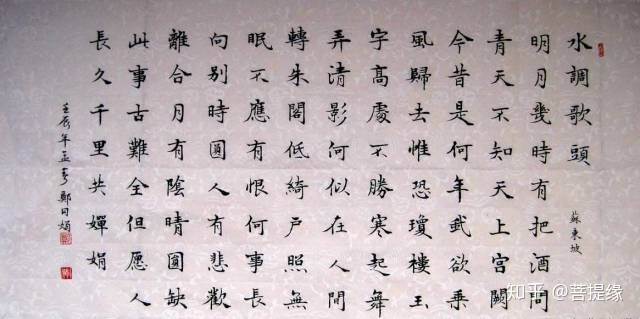 水調歌頭
蘇東坡
明月幾時有把酒問
青天不知天上宮闕
今昔是何年我欲乘
風歸去惟恐瓊樓玉
宇高處不勝寒起舞
弄清影何似在人間
轉朱閣低綺戶照無
眠不應有恨何事長
向別時圓人有悲歡
離合月有陰晴圓缺
此事古難全但愿人
長久千里共嬋娟
壬辰年孟春鄭同娟
知乎 @菩提缘